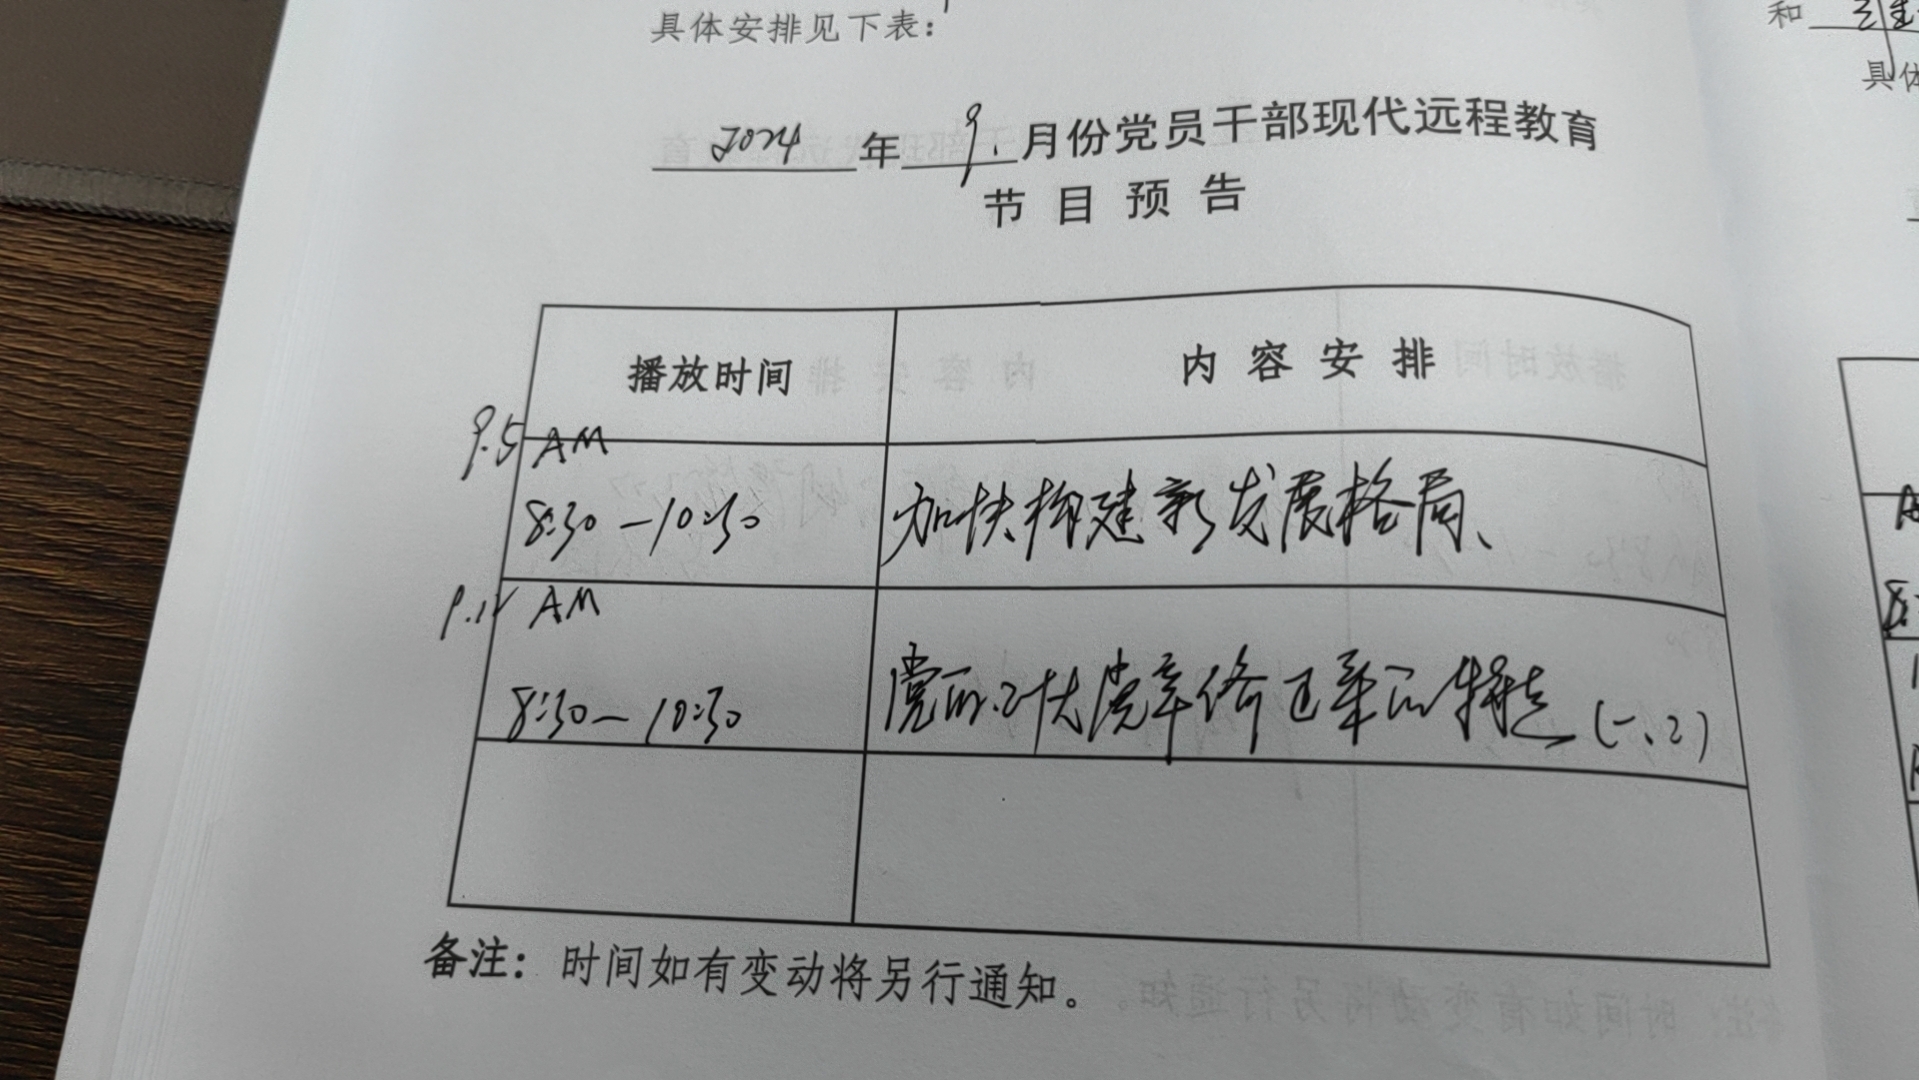 具体安排见下表:
和
具体
2024年9.月份党员干部现代远程教育
节目预告
播放时间 内容安排
9.5 AM
8:30-10:30 加快构建新发展格局、
9.12 AM
8:30-10:30 党的二十大党章修正案的特点(一、二)
备注: 时间如有变动将另行通知。